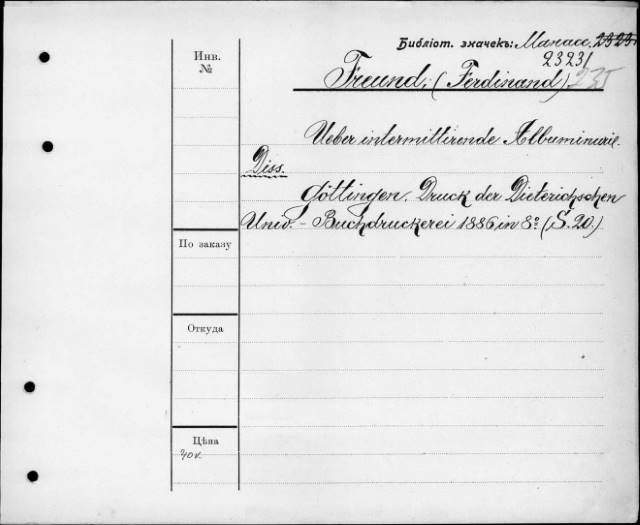 Библіот. значекъ: Манасс. 2323
23231
Инв.
№
Freund, (Ferdinand)
Ueber intermittirende Albuminurie.
Diss.
Göttingen. Druck der Dieterichschen
Univ.-Buchdruckerei 1886 in 8º (S. 20.)
По заказу
Откуда
Цѣна
40 к.